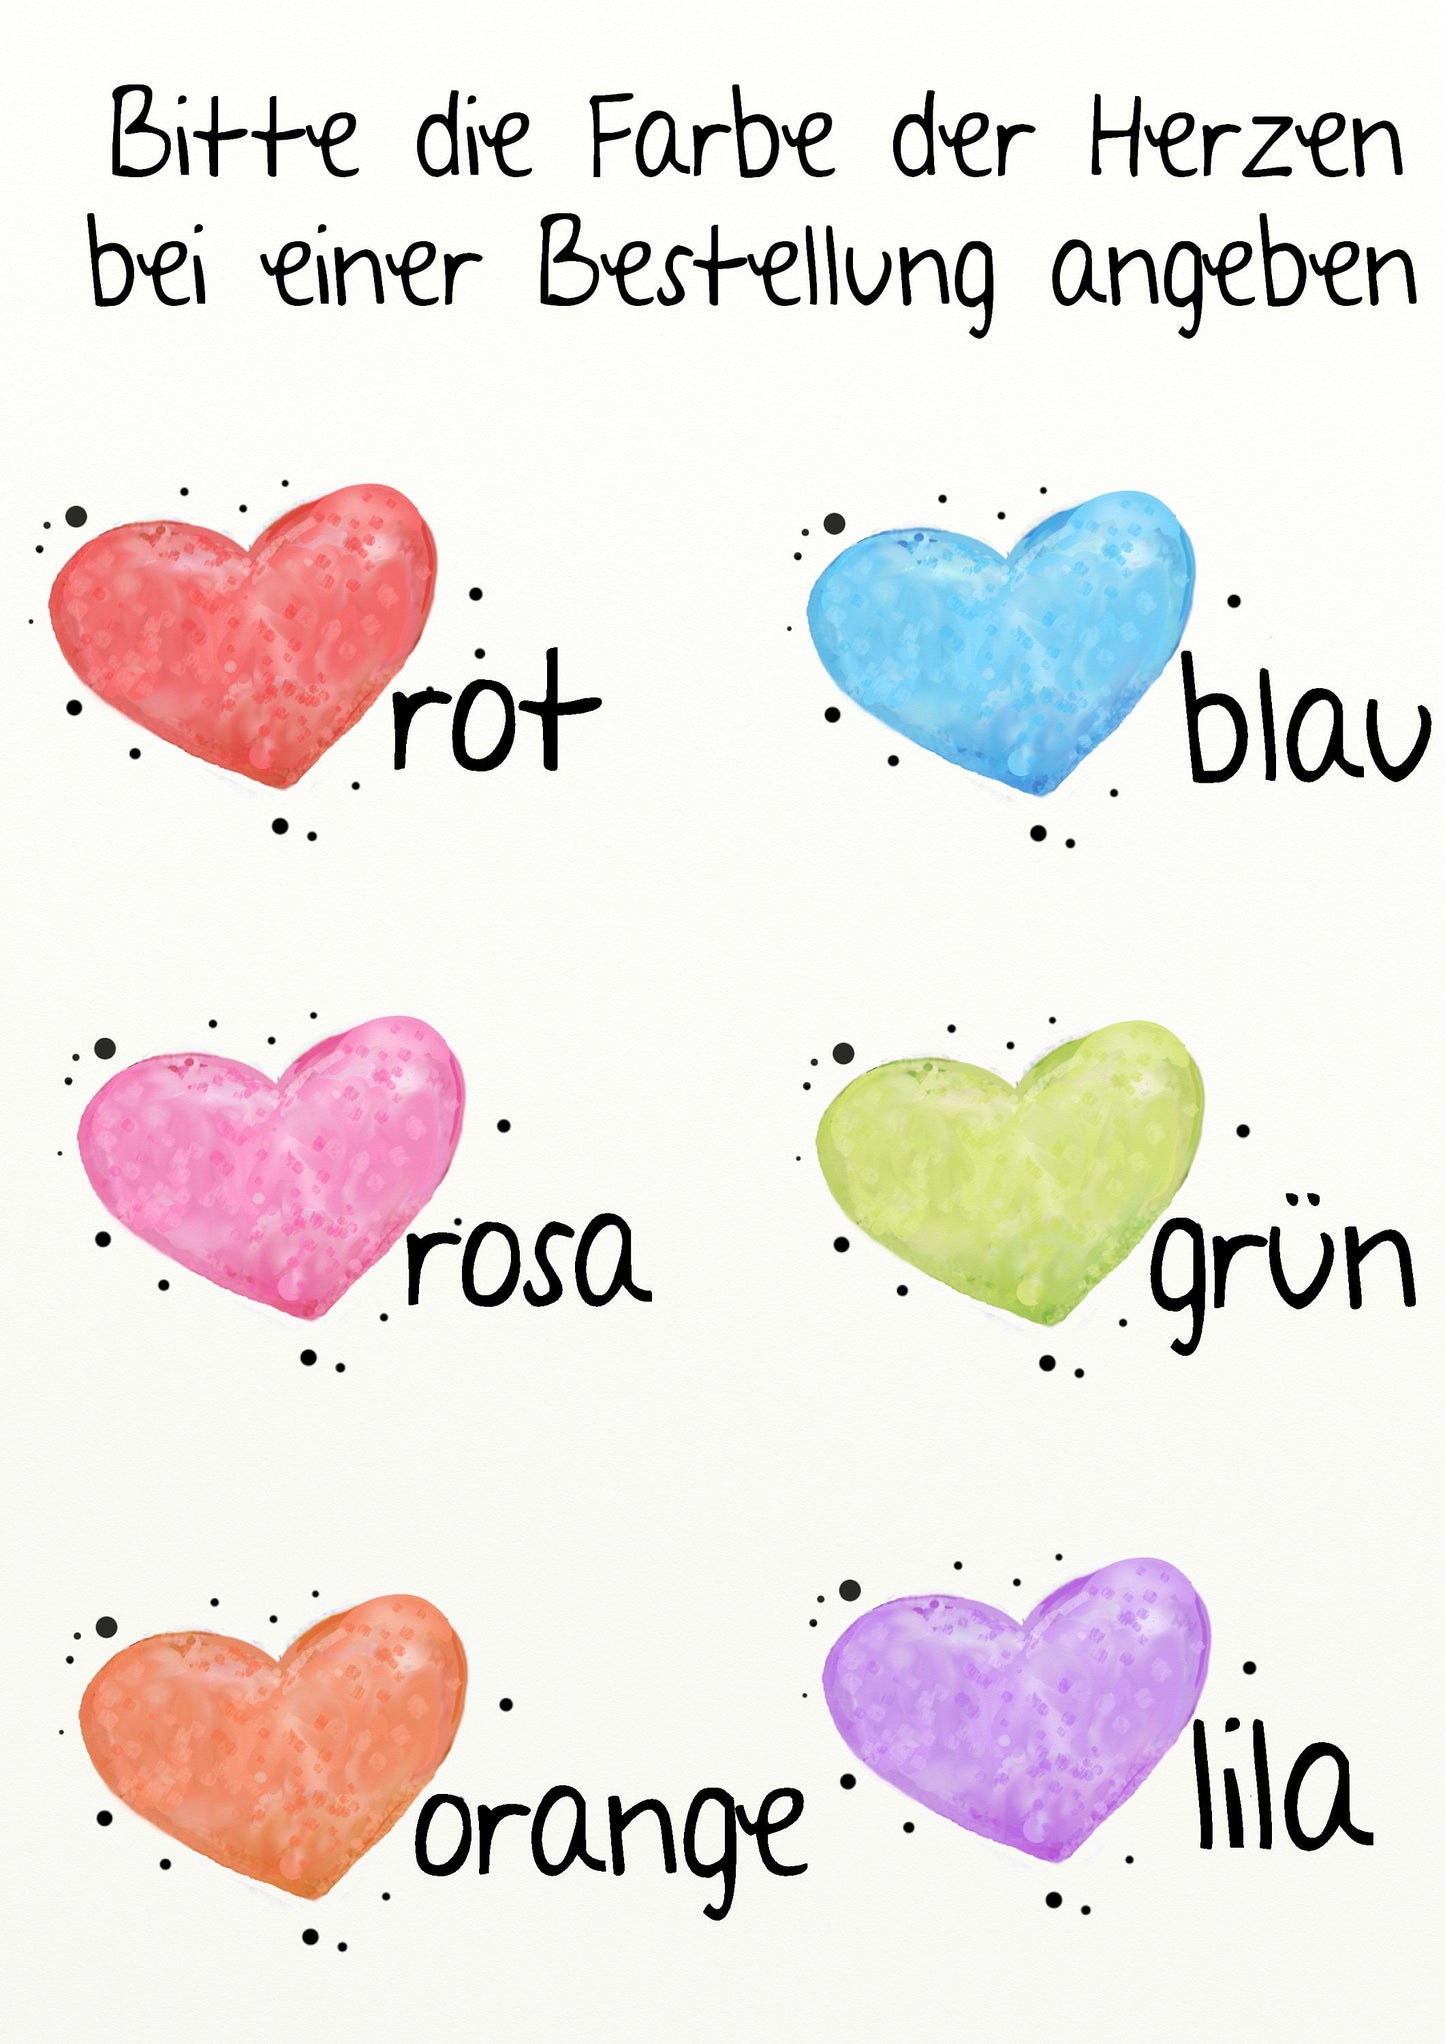 Bitte die Farbe der Herzen
bei einer Bestellung angeben
rot
blau
rosa
grün
orange
lila